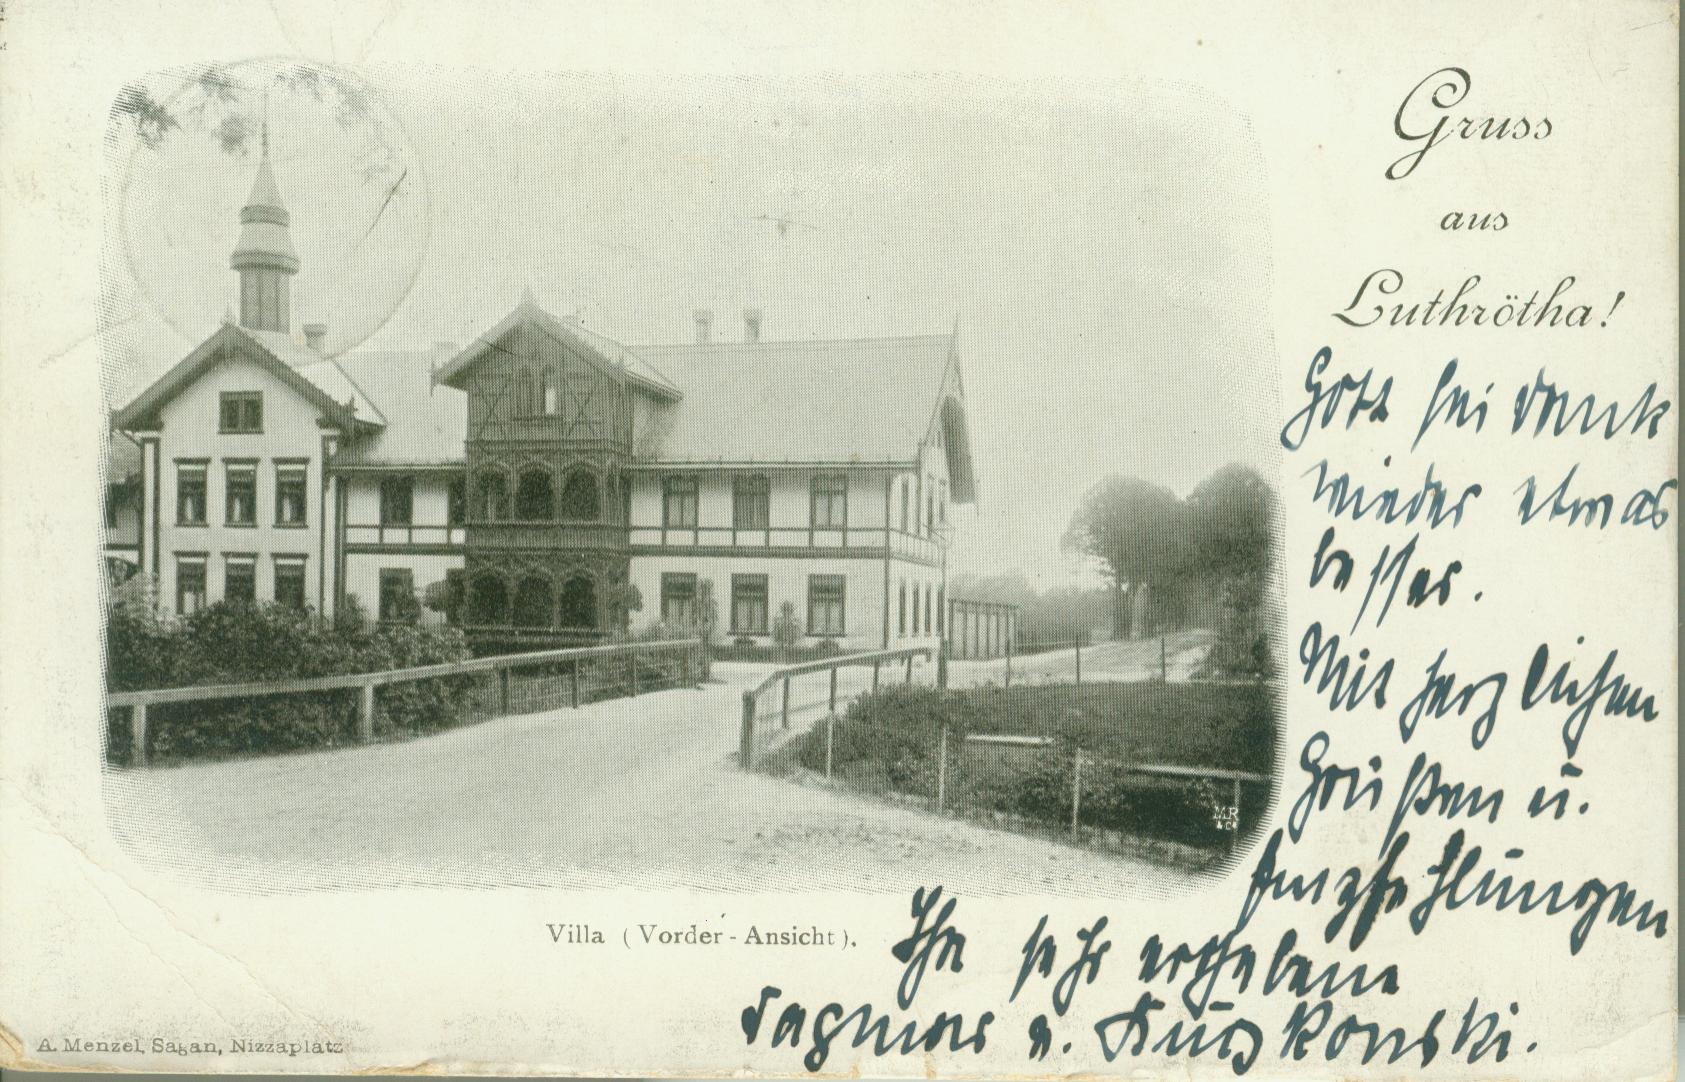 Gruss
aus
Luthrötha!
Gott sei dank
wieder etwas
besser.
Mit herzlichen
Grüßen u.
Empfehlungen
Ihre sehr ergebene
Dagmar v.
Villa (Vorder-Ansicht).
A. Menzel, Sagan, Nizzaplatz
MR
& Co